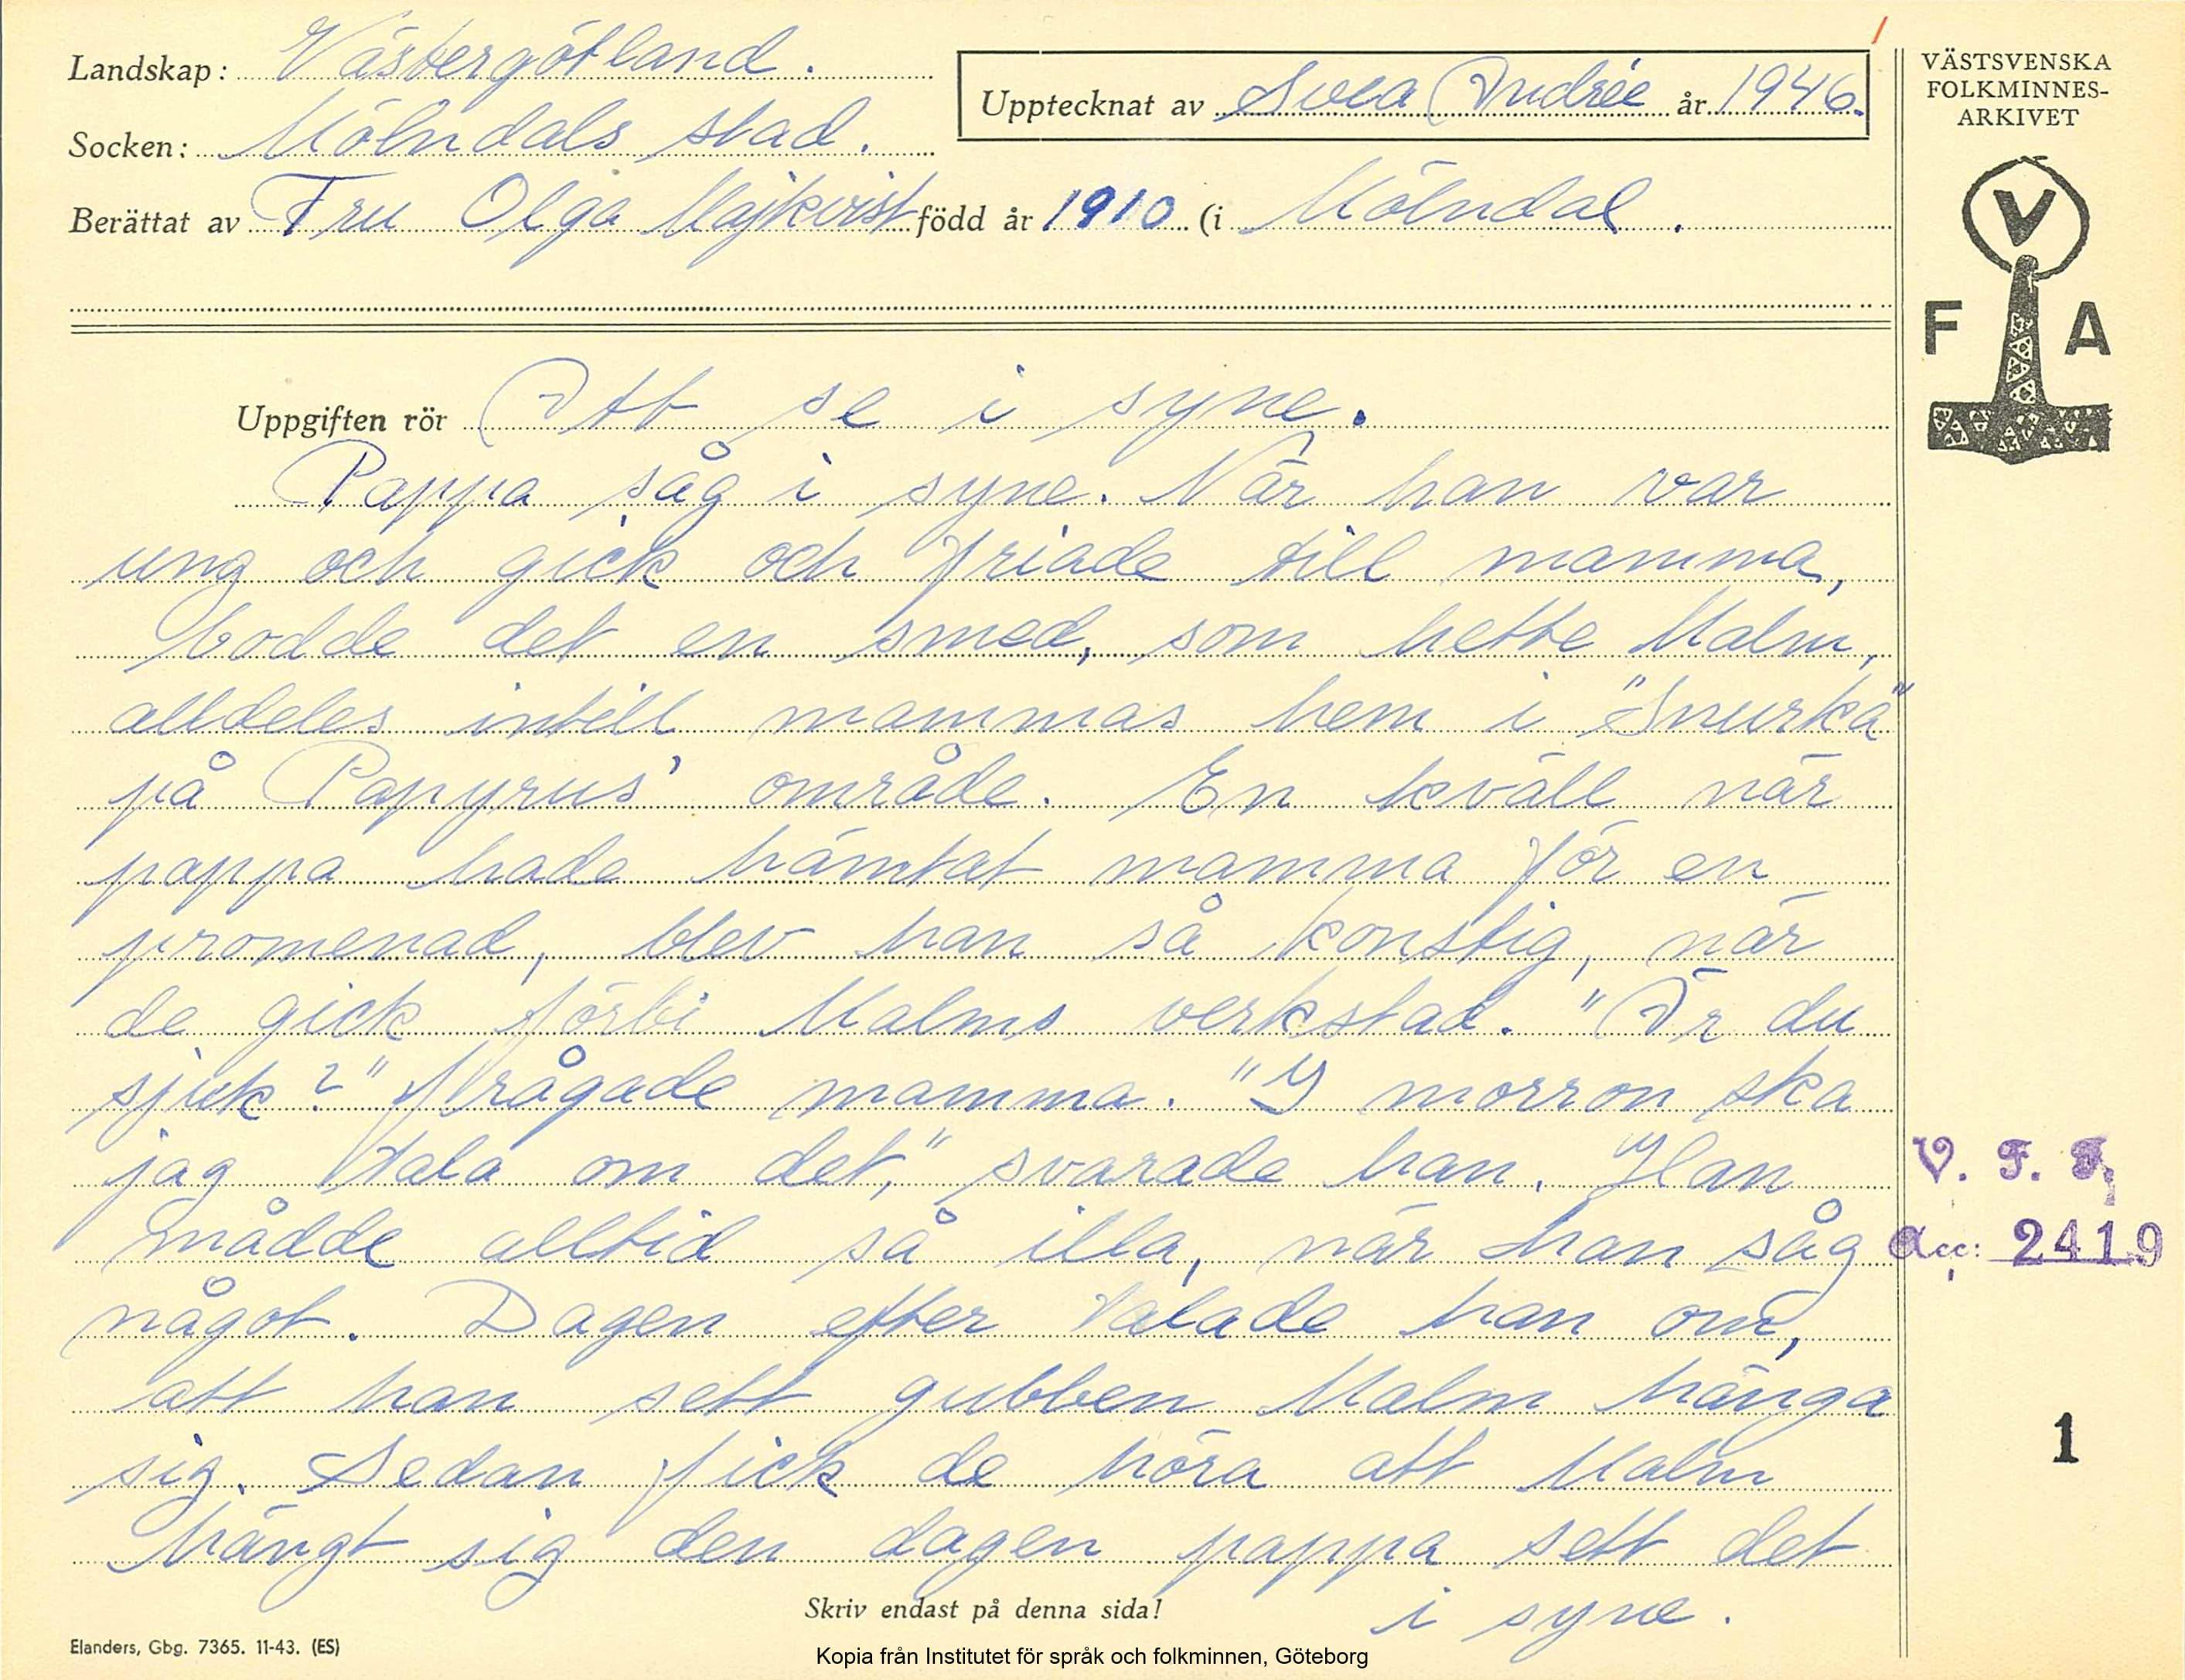 Landskap: Västergötland.
Socken: Mölndals stad.
Upptecknat av Svea Andrée år 1946.
Berättat av Fru Olga Majkvist född år 1910 (i Mölndal.
VÄSTSVENSKA
FOLKMINNES-
ARKIVET
V
F A
Uppgiften rör Att se i syne.
Pappa såg i syne. När han var
ung och gick och friade till mamma,
bodde det en smed, som hette Malm,
alldeles intill mammas hem i "Snurka"
på Papyrus' område. En kväll när
pappa hade hämtat mamma för en
promenad, blev han så konstig, när
de gick förbi Malms verkstad. "Är du
sjuk?" frågade mamma. "I morron ska
jag tala om det," svarade han. Han
mådde alltid så illa, när han såg
något. Dagen efter talade han om,
att han sett gubben Malm hänga
sig. Sedan fick de höra att Malm
hängt sig den dagen pappa sett det
i syne.
V. F. F.
Acc: 2419
1
Skriv endast på denna sida!
Elanders, Gbg. 7365. 11-43. (ES)
Kopia från Institutet för språk och folkminnen, Göteborg